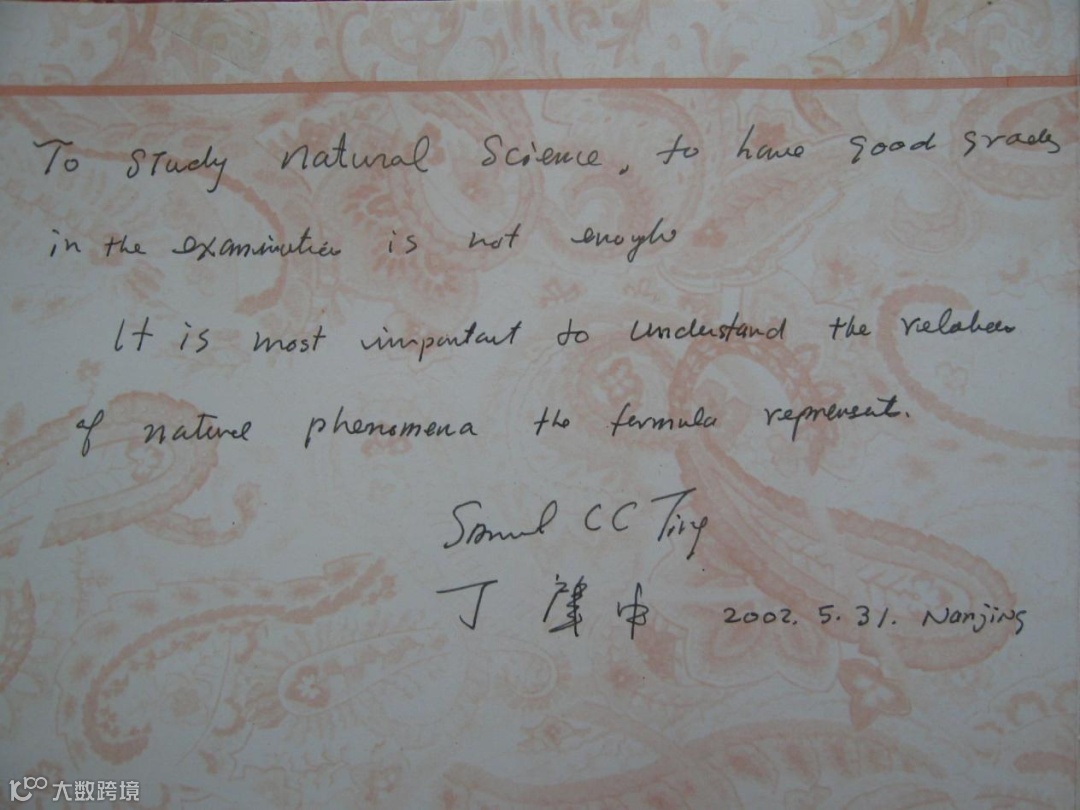 To study natural Science, to have good grades
in the examination is not enough
It is most important to understand the relation
of natural phenomena the formula represent.
Samuel CC Ting
丁肇中 2002. 5. 31. Nanjing
大数跨境